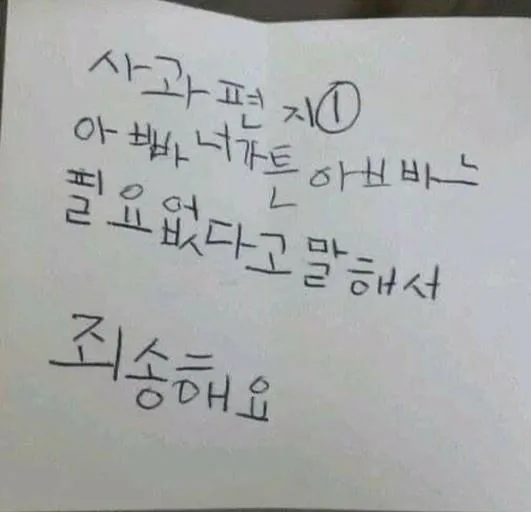 사과편지①
아빠 너가튼 아빠는
필요없다고 말해서
죄송해요